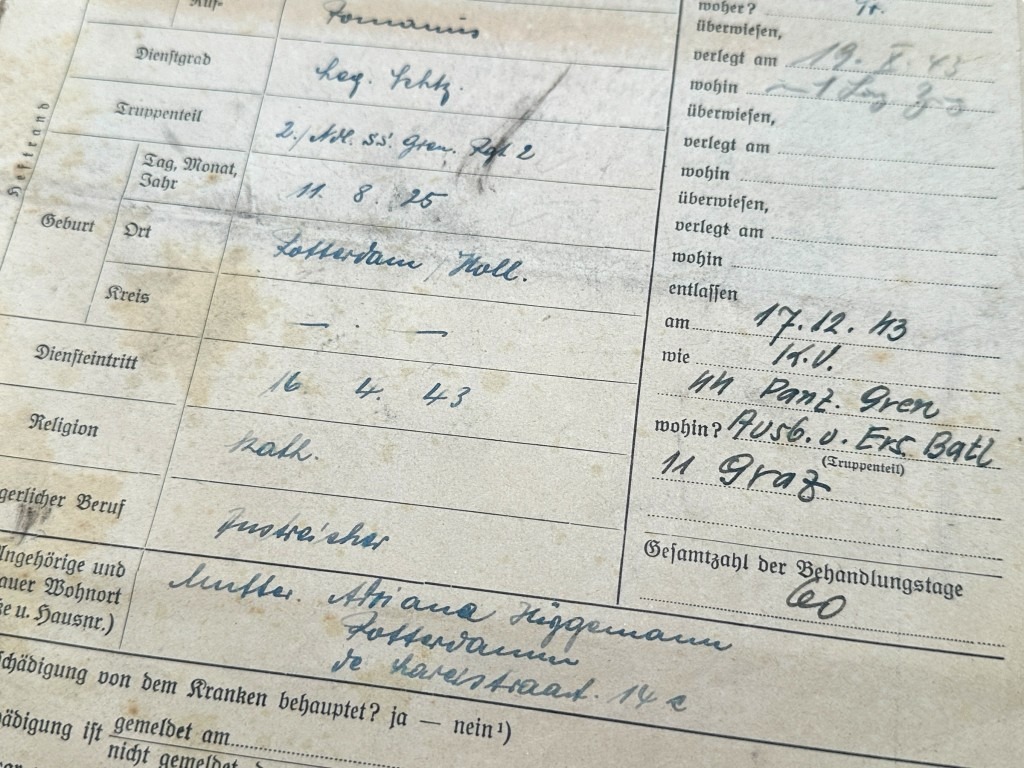 Ruf-
Romanus
Dienstgrad
Leg. Schtz.
Truppenteil
2./Ndl. SS. Gren. Rgt. 2
Heftrand
Geburt
Tag, Monat,
Jahr
11. 8. 25
Ort
Rotterdam / Holl.
Kreis
— . —
Diensteintritt
16 4. 43
Religion
Kath.
gerlicher Beruf
Anstreicher
Angehörige und
auer Wohnort
e u. Hausnr.)
Mutter. Adriana Hüggemann
Rotterdamm
straat. 14 c
schädigung von dem Kranken behauptet? ja — nein ¹)
ädigung ist gemeldet am
nicht gemeldet
woher?
überwiesen,
verlegt am 19. X. 43
wohin
überwiesen,
verlegt am
wohin
überwiesen,
verlegt am
wohin
entlassen
am 17.12.43
wie K.V.
ᛋᛋ Panz. Gren
wohin? Ausb. u. Ers. Batl
(Truppenteil)
11 Graz
Gesamtzahl der Behandlungstage
60